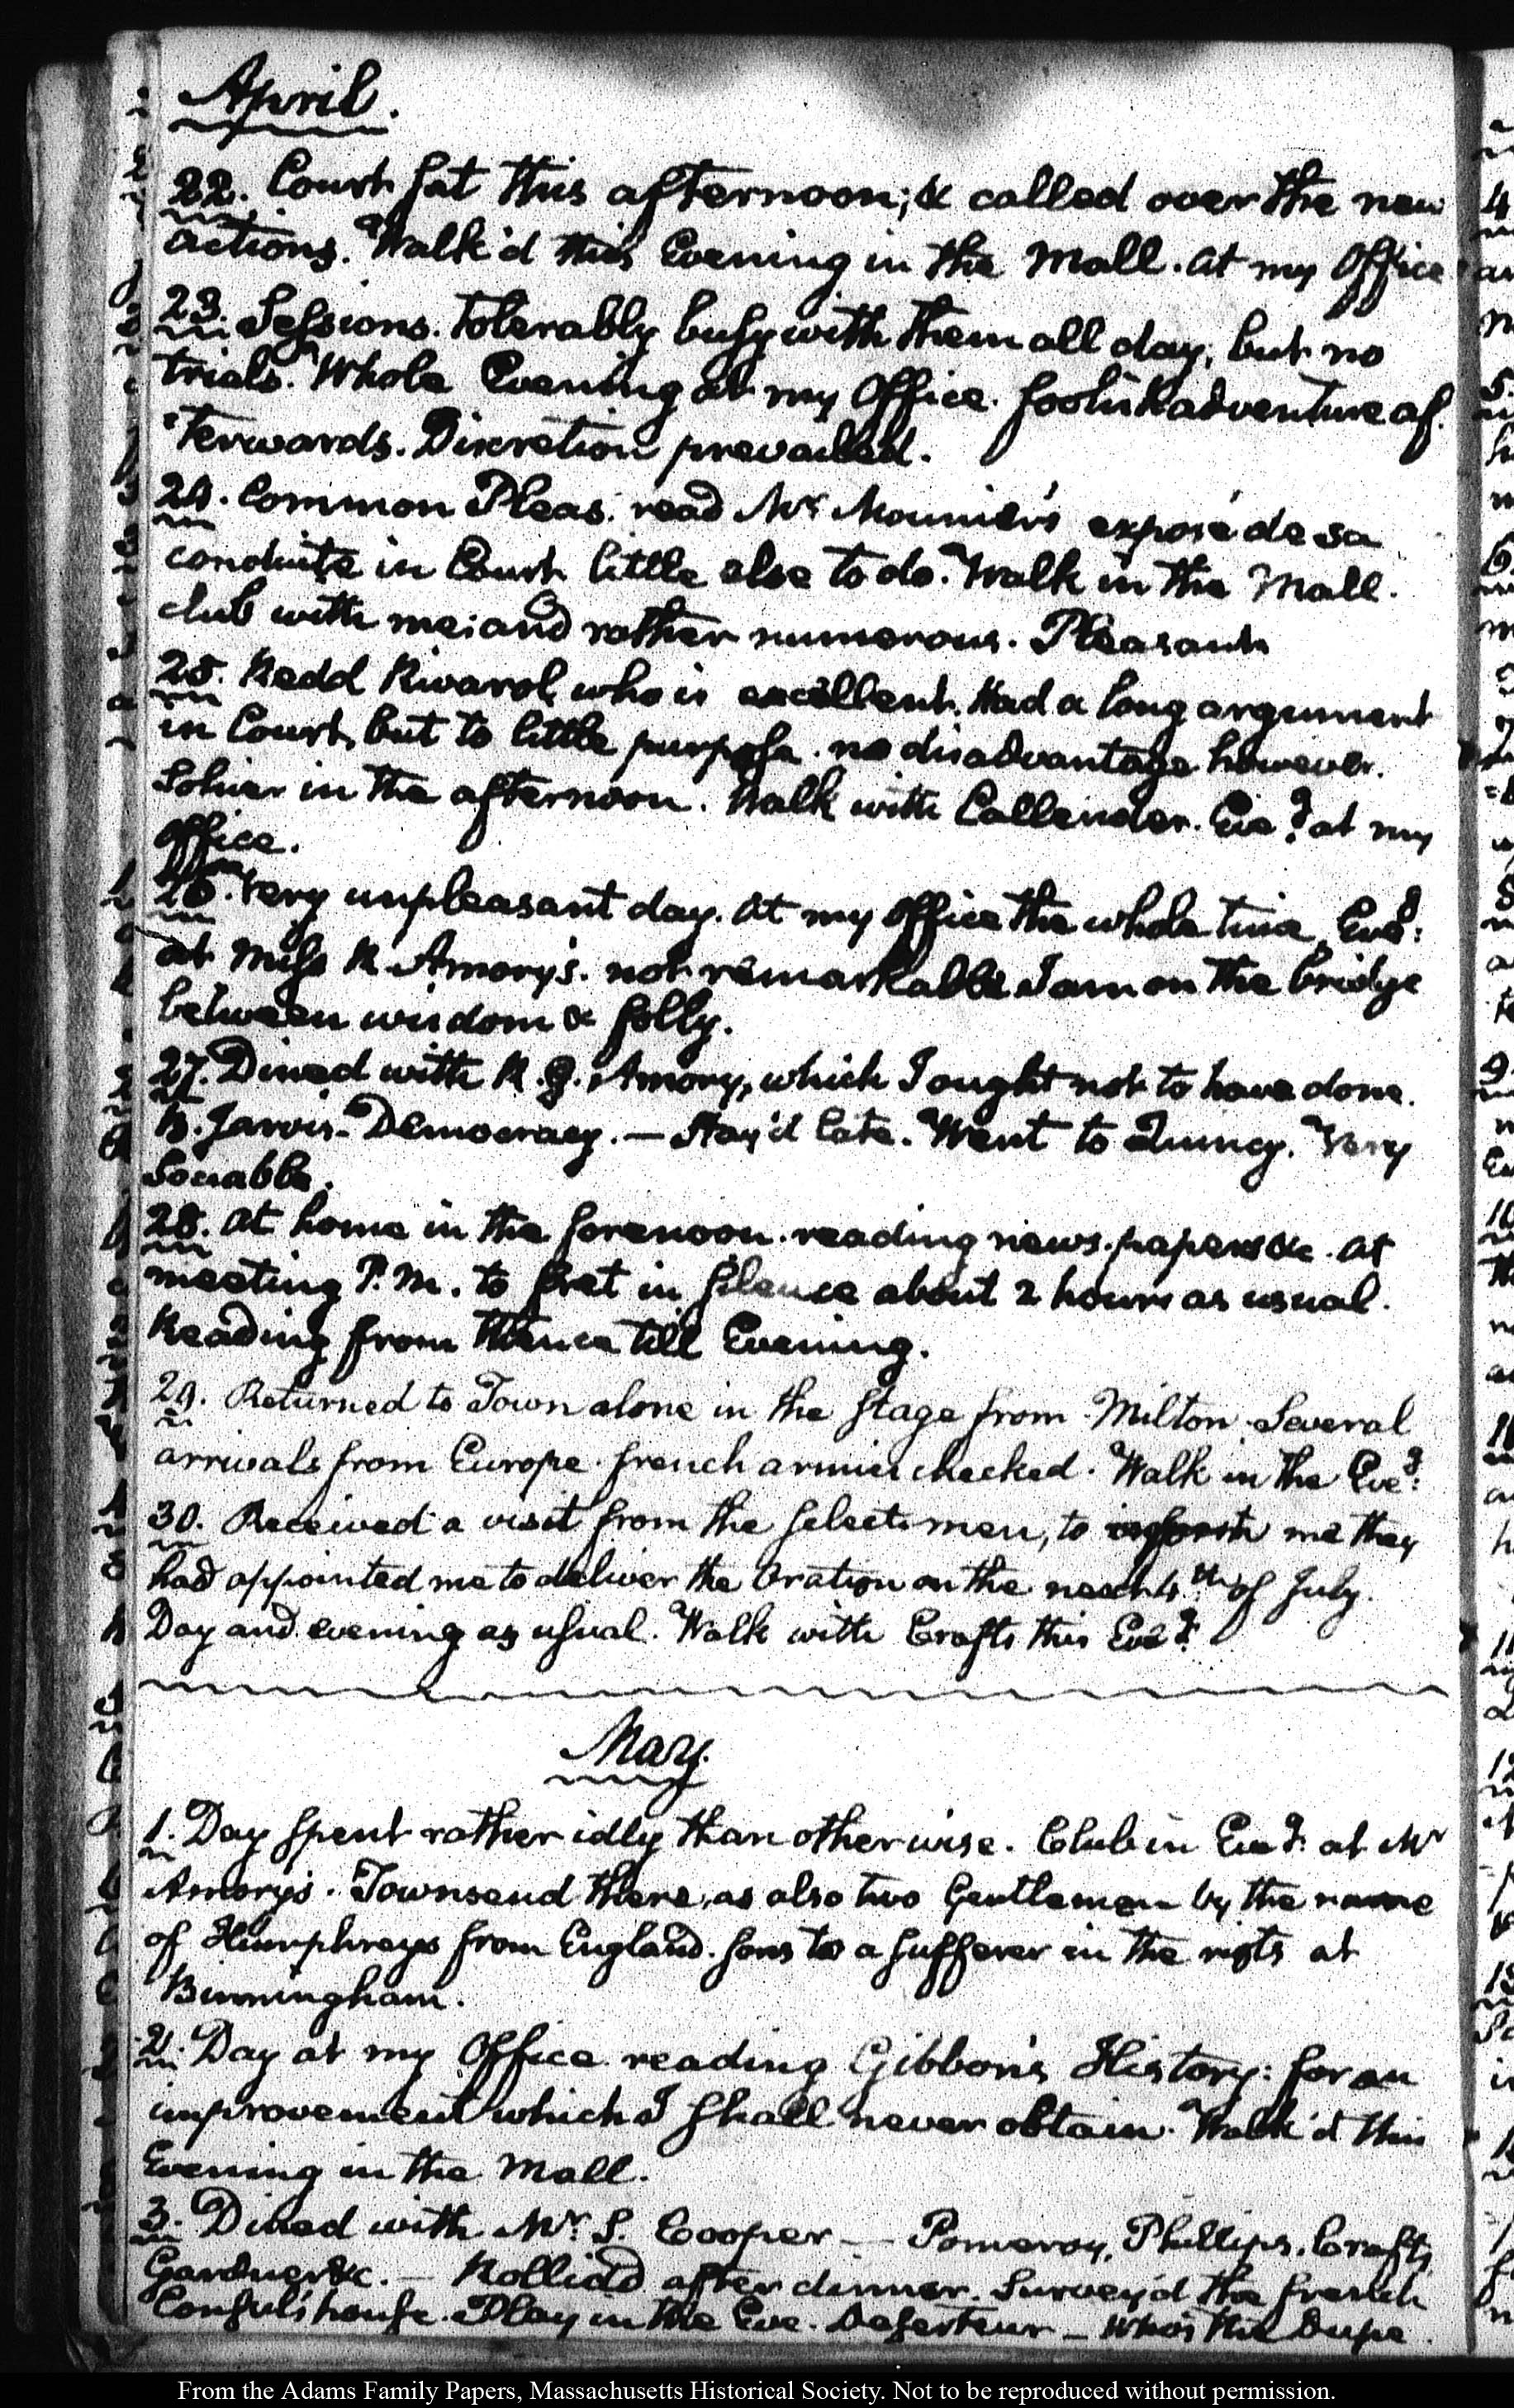 April.
22. Court sat this afternoon; & called over the new
actions. Walk'd this Evening in the Mall. at my Office
23. Sessions. tolerably busy with them all day; but no
trials. Whole Evening at my Office. foolish adventure af-
terwards. Discretion prevailed.
24. Common Pleas. read Mr. Mounier's exposé de sa
conduite in Court little else to do. Walk in the Mall.
club with me; and rather numerous. Pleasant
25. Redd Rivarol, who is excellent. Had a long argument
in Court, but to little purpose. no disadvantage however.
Sohier in the afternoon. Walk with Callender. Eveg. at my
Office.
26. Very unpleasant day. At my Office the whole time, Eveg:
at Miss R. Amory's. not remarkable I am on the bridge
between wisdom & folly.
27. Dined with R. G. Amory, which I ought not to have done.
B. Jarvis. Democracy. — Stay'd late. Went to Quincy. Very
Sociable.
28. At home in the forenoon. reading news-papers &c. At
meeting P.M. to fret in silence about 2 hours as usual.
Reading from thence till Evening.
29. Returned to Town alone in the stage from Milton. Several
arrivals from Europe. french armies checked. Walk in the Eveg:
30. Received a visit from the select-men, to inform me they
had appointed me to deliver the Oration on the next 4th of July.
Day and evening as usual. Walk with Crafts this Eveg:
May.
1. Day spent rather idly than otherwise. Club in Eveg: at Mr
Amory's. Townsend there, as also two Gentlemen by the name
of Humphreys from England. sons to a sufferer in the riots at
Birmingham.
2. Day at my Office reading Gibbon's History: for an
improvement which I shall never obtain. Walk'd this
Evening in the Mall.
3. Dined with Mr. S. Cooper — Pomeroy, Phillips, Crafts,
Gardner &c. — Rollick'd after dinner. Survey'd the french
Consul's house. Play in the Eve. Deserteur — Who's the Dupe.
From the Adams Family Papers, Massachusetts Historical Society. Not to be reproduced without permission.